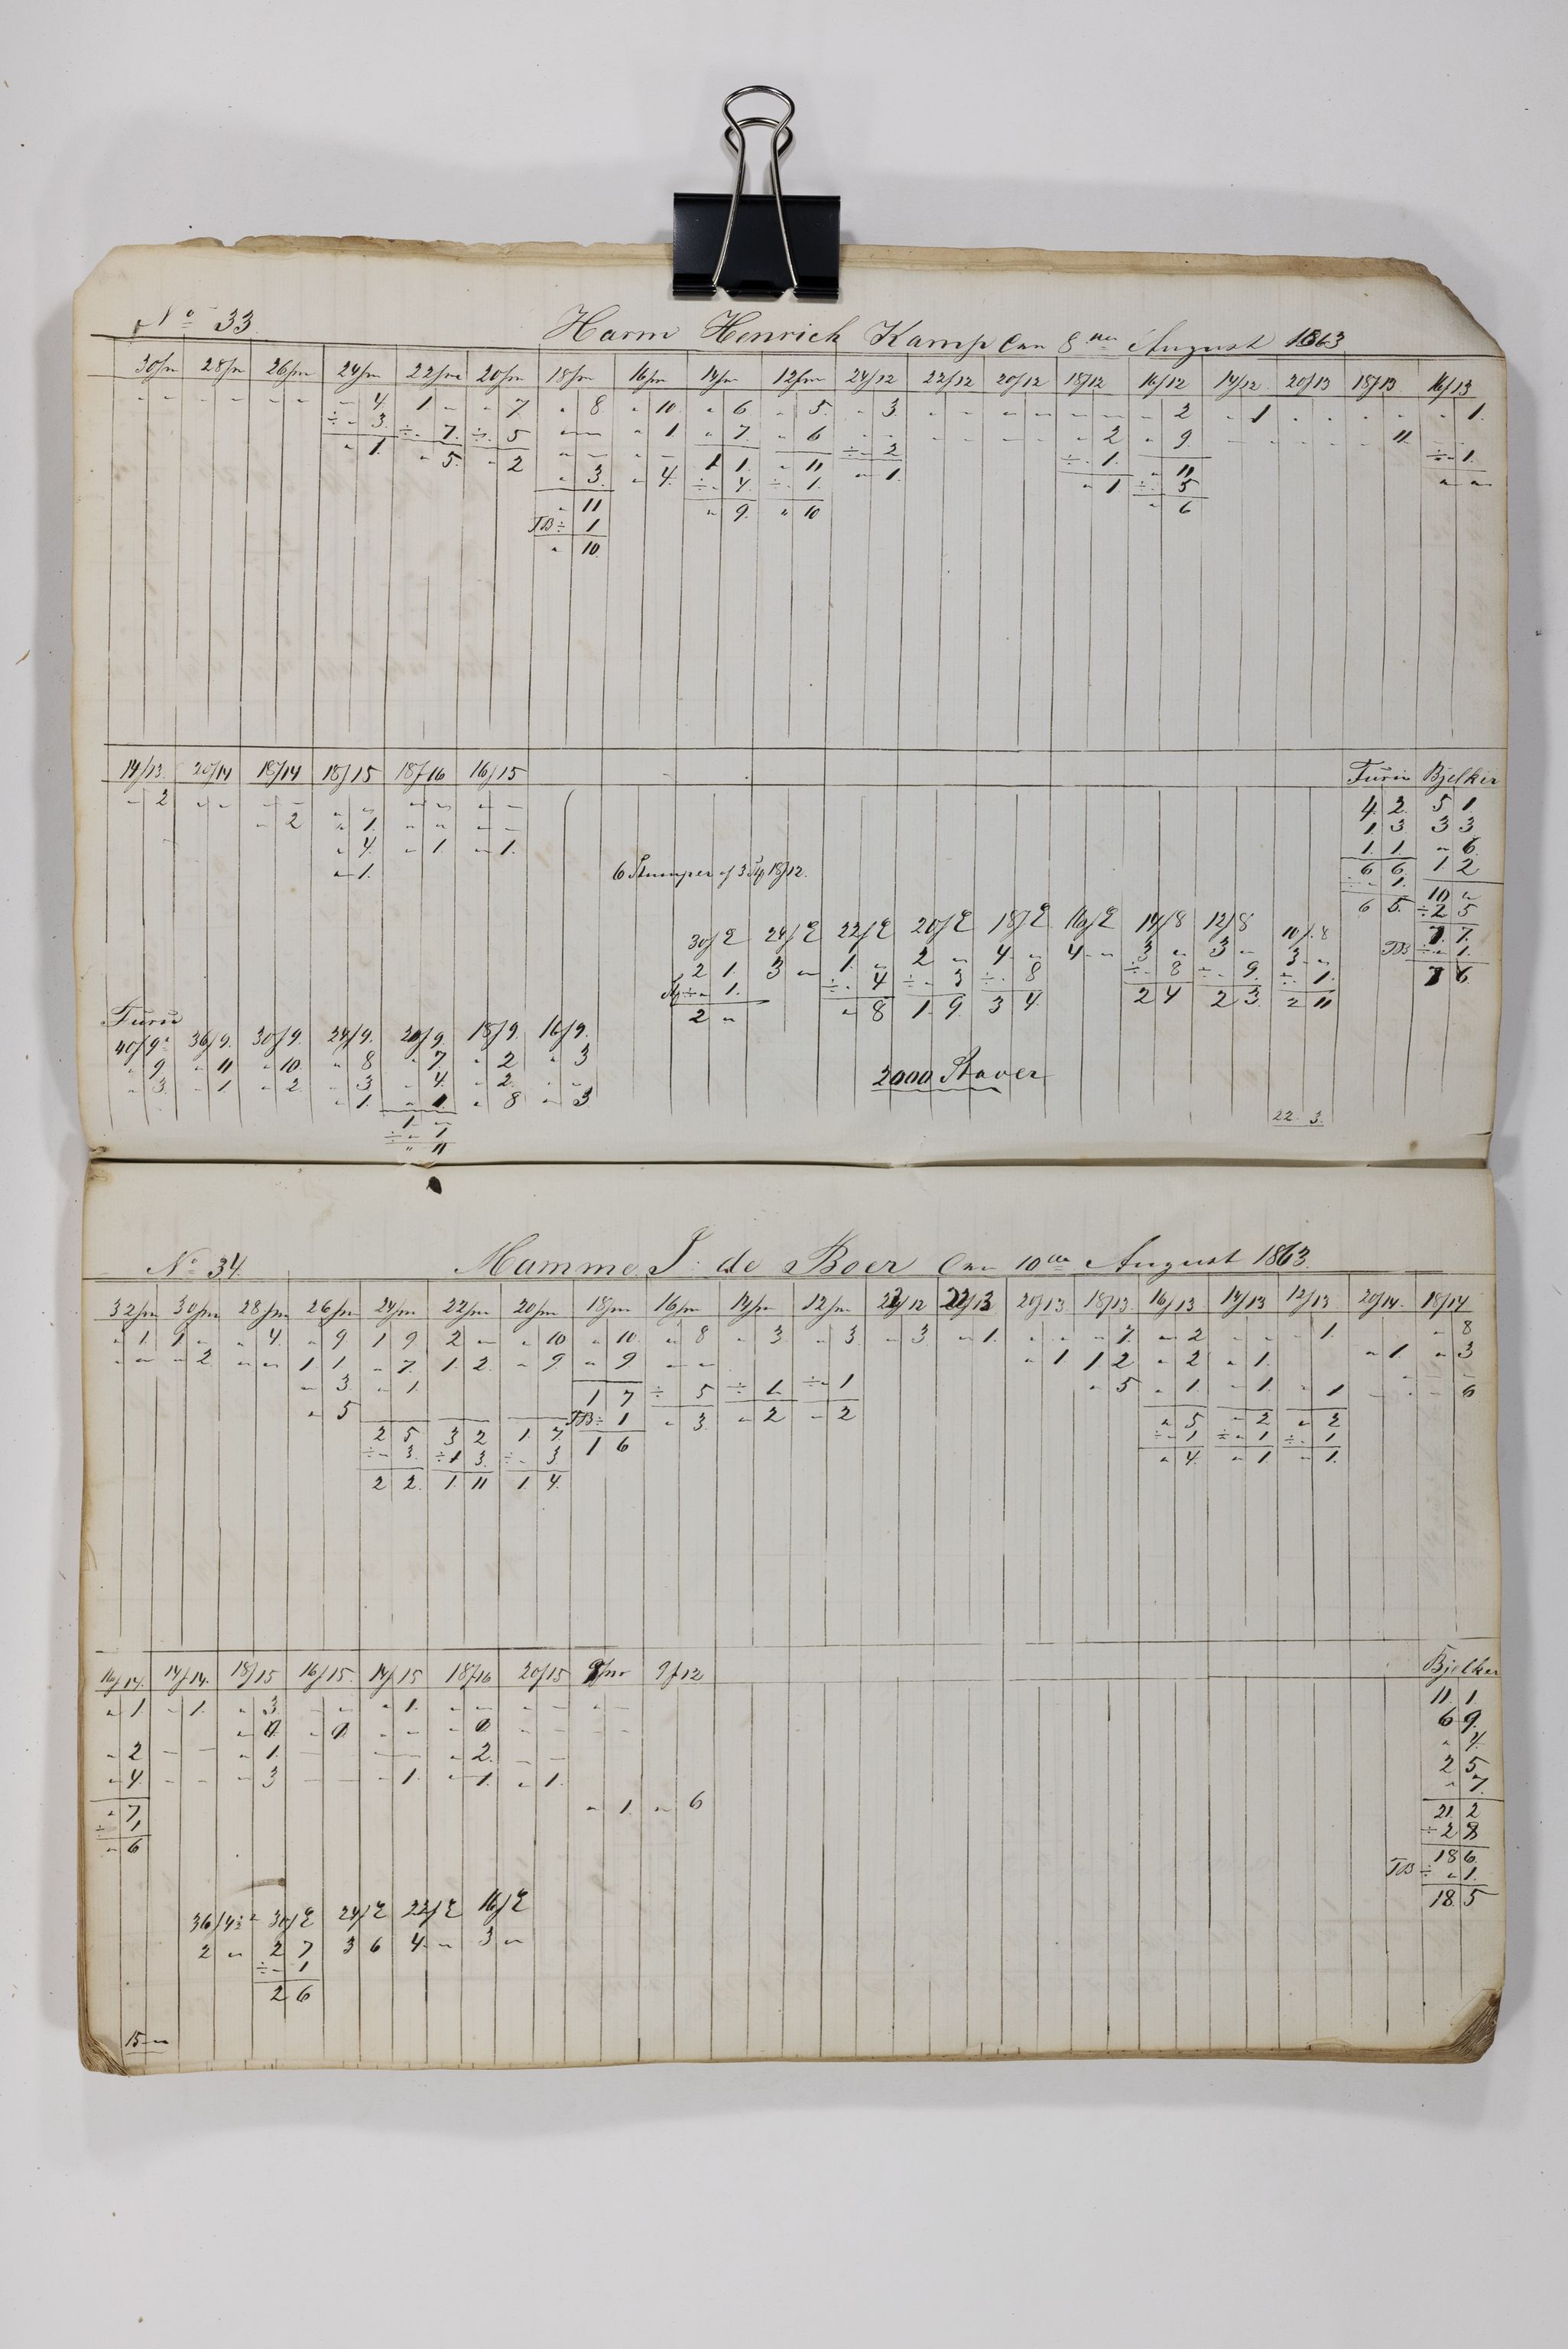 No 33 Harm Henrich Kamp den 8de August 1863
30/m 28/m 26/m 24/m 22/m 20/m 18/m 16/m 14/m 12/m 24/12 22/12 20/12 18/12 16/12 14/12 20/13 18/13 16/13
" " " " " " " 4 1 " " 7 " 8 " 10 " 6 " 5 " 3 " " " " " " " 2 " 1 " " " " " 1
÷ " 3 ÷ " 7 ÷ " 5 " " " 1 " 7 " 6 " " " " " " " 2 " 9 " " " " " 11 " "
" 1 " 5 " 2 " " " " 1 1 " 11 ÷ " 2 ÷ " 1 " 11 ÷ " 1
" 3 " 4 ÷ " 4 ÷ " 1 " 1 " 1 ÷ " 5 " "
" 11 " 9 " 10 " 6
TB ÷ 1
" 10
14/13 20/14 18/14 18/15 18/16 16/15 Furu Bjelker
" 2 " " " " " " " " " " 4 2 5 1
" 2 " 1 " " " " 1 3 3 3
" 4 " 1 " 1 1 1 " 6
" 1 6 6 1 2
6 Stumper af 3 18/12
÷ " 1 10 "
6 5 ÷ 2 5
30/E 24/E 22/E 20/E 18/E 16/E 14/8 12/8 10/8 7 7
2 1 3 " 1 " 2 " 4 " 4 " 3 " 3 " 3 " TB ÷ " 1
÷ " 1 ÷ " 4 ÷ " 3 ÷ " 8 ÷ " 8 ÷ " 9 ÷ " 1 7 6
2 " " 8 1 9 3 4 2 4 2 3 2 11
Furu
40/9 36/9 30/9 24/9 20/9 18/9 16/9
" 9 " 11 " 10 " 8 " 7 " 2 " 3
" 3 " 1 " 2 " 3 " 4 " 2 " "
" 1 " 1 " 8 " 3
2000 Staver
1 "
÷ " 1
" 11
22 3
No 34 Mamme J. de Boer den 10de August 1863
32/m 30/m 28/m 26/m 24/m 22/m 20/m 18/m 16/m 14/m 12/m 22/12 22/13 20/13 18/13 16/13 14/13 12/13 20/14 18/14
" 1 1 " " 4 " 9 1 9 2 " " 10 " 10 " 8 " 3 " 3 " 3 " 1 " " " 7 " 2 " " " 1 " 8
" " " 2 " " 1 1 " 7 1 2 " 9 " 9 " " " 1 1 2 " 2 " 1 " 1 " 3
" 3 " 1 1 7 ÷ 5 ÷ 1 ÷ " 1 " 5 " 1 " 1 " 1 " " " 6
" 5 TB ÷ 1 " 3 " 2 " 2 " 5 " 2 " 2
2 5 3 2 1 7 1 6 ÷ " 1 ÷ " 1 ÷ " 1
÷ " 3 ÷ 1 3 ÷ " 3 " 4 " 1 " 1
2 2 1 11 1 4
16/14 14/14 18/15 16/15 14/15 18/16 20/15 9/m 9/12 Bjelker
" 1 " 1 " 3 " " " 1 " " " " " " 11 1
6 9
" 2 " " " 1 " " " " " 2 " " " 4
" 4 " " " 3 " " " 1 " 1 " 1 2 5
" 7
" 7 " 1 " 6 21 2
÷ 1 ÷ 2 8
" 6 18 6
TB ÷ " 1
18 5
30/E 24/E 22/E 16/E
2 " 2 7 3 6 4 " 3 "
÷ " 1
2 6
15 "